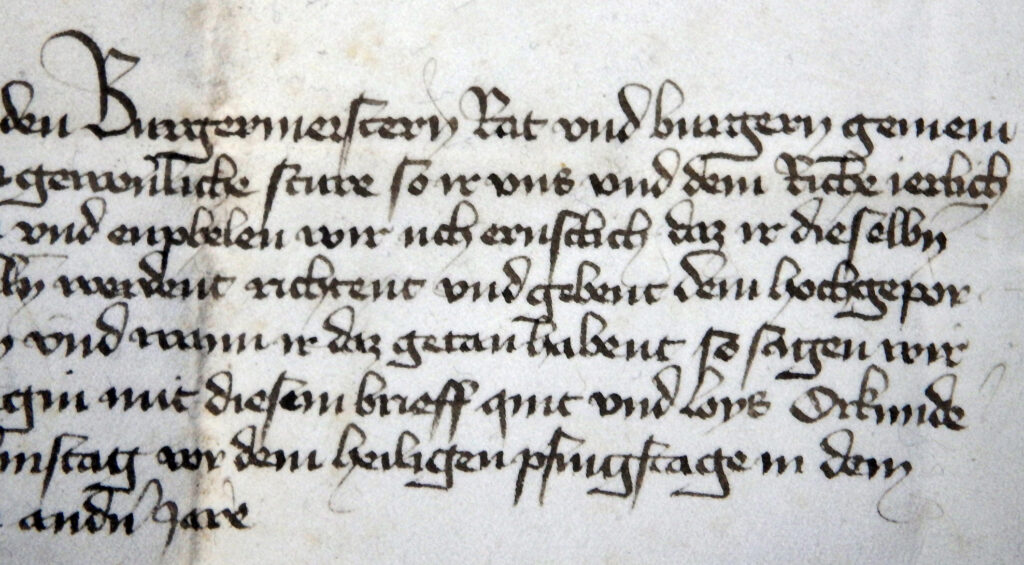 den Burgermeistern Rat vnd burgern gemein
gewonliche sture so ir vns vnd dem Riche ierlich
vnd enphelen wir uch ernstlich daz ir dieselbn
werdent richtent vnd gebent dem hochgepor
vnd wann ir daz getan habent so sagen wir
mit diesem brieff quit vnd loys Orkunde
mstag vor dem heiligen pfingstage in dem
andn Jare